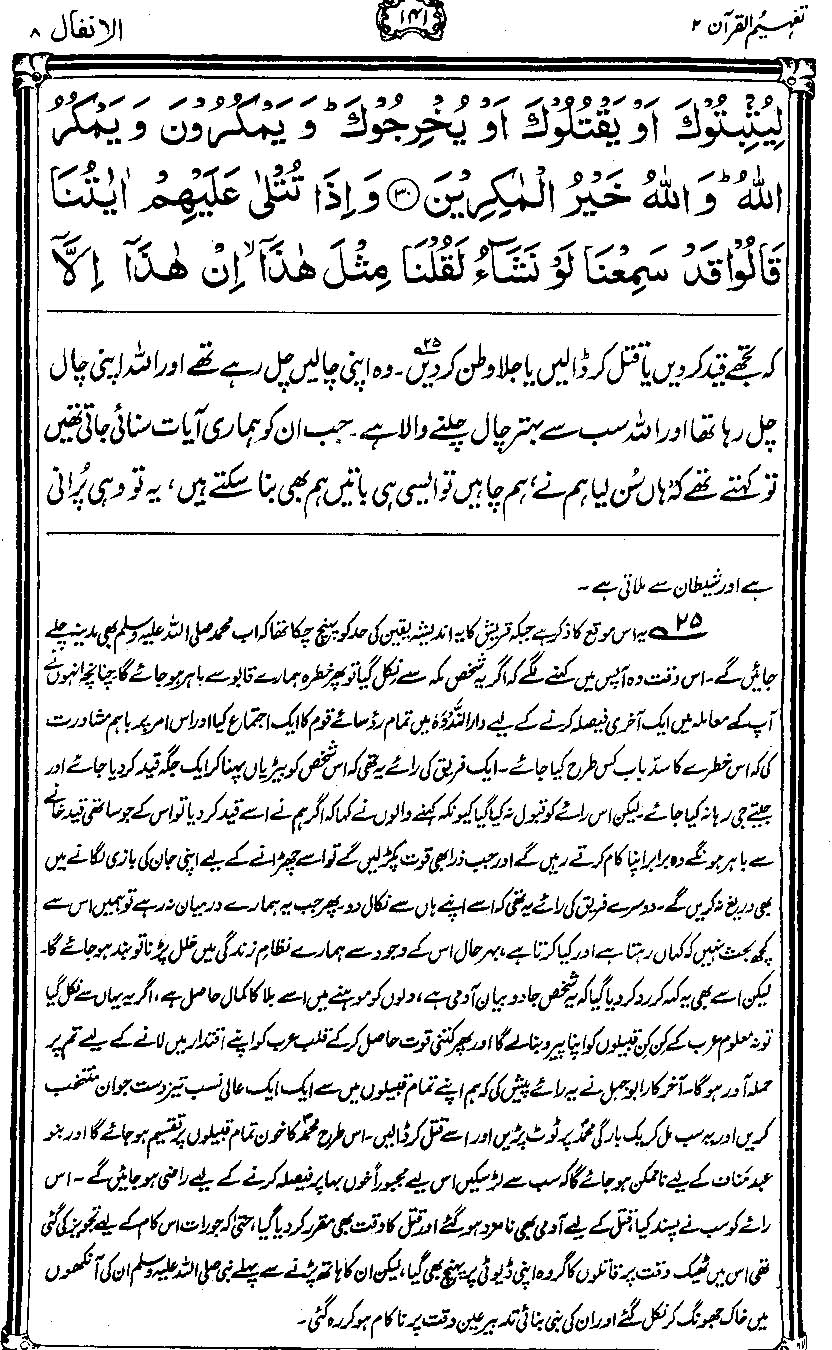 تفہیم القرآن ۲
۱۴۱
الانفال ۸
لِیُثْبِتُوْكَ اَوْ یَقْتُلُوْكَ اَوْ یُخْرِجُوْكَ ؕ وَ یَمْكُرُوْنَ وَ یَمْكُرُ
اللّٰهُ ؕ وَ اللّٰهُ خَیْرُ الْمٰكِرِیْنَ ۳۰ وَ اِذَا تُتْلٰی عَلَیْهِمْ اٰیٰتُنَا
قَالُوْا قَدْ سَمِعْنَا لَوْ نَشَآءُ لَقُلْنَا مِثْلَ هٰذَاۤ ۙ اِنْ هٰذَاۤ اِلَّاۤ
کہ تجھے قید کردیں یا قتل کر ڈالیں یا جلا وطن کردیں۲۵۔ وہ اپنی چالیں چل رہے تھے اور اللہ اپنی چال
چل رہا تھا اور اللہ سب سے بہتر چال چلنے والا ہے۔ جب ان کو ہماری آیات سنائی جاتی تھیں
تو کہتے تھے کہ ’’ہاں سُن لیا ہم نے، ہم چاہیں تو ایسی ہی باتیں ہم بھی بنا سکتے ہیں، یہ تو وہی پُرانی
ہے اور شیطان سے ملاتی ہے۔
۲۵ یہ اس موقع کا ذکر ہے جبکہ قریش کا یہ اندیشہ یقین کی حد کو پہنچ چکا تھا کہ اب محمد صلی اللہ علیہ وسلم بھی مدینہ چلے
جائیں گے۔ اس وقت وہ آپس میں کہنے لگے کہ اگر یہ شخص مکہ سے نکل گیا تو پھر خطرہ ہمارے قابو سے باہر ہو جائے گا چنانچہ انہوں نے
آپ کے معاملہ میں ایک آخری فیصلہ کرنے کے لیے دارالنَّدوَہ میں تمام رؤسائے قوم کا ایک اجتماع کیا اور اس امر پر باہم مشاورت
کی کہ اس خطرے کا سدِّباب کس طرح کیا جائے۔ ایک فریق کی رائے یہ تھی کہ اس شخص کو بیڑیاں پہنا کر ایک جگہ قید کر دیا جائے اور
جیتے جی رہا نہ کیا جائے۔ لیکن اس رائے کو قبول نہ کیا گیا کیونکہ کہنے والوں نے کہا کہ اگر ہم نے اسے قید کر دیا تو اس کے جو ساتھی قید خانے
سے باہر ہونگے وہ برابر اپنا کام کرتے رہیں گے اور جب ذرا بھی قوت پکڑ لیں گے تو اسے چھڑانے کے لیے اپنی جان کی بازی لگانے میں
بھی دریغ نہ کریں گے۔ دوسرے فریق کی رائے یہ تھی کہ اسے اپنے ہاں سے نکال دو۔ پھر جب یہ ہمارے درمیان نہ رہے تو ہمیں اس سے
کچھ بحث نہیں کہ کہاں رہتا ہے اور کیا کرتا ہے، بہرحال اس کے وجود سے ہمارے نظامِ زندگی میں خلل پڑنا تو بند ہو جائے گا۔
لیکن اسے بھی یہ کہہ کر رد کر دیا گیا کہ یہ شخص جادو بیان آدمی ہے، دلوں کو موہنے میں اسے بلا کا کمال حاصل ہے، اگر یہ یہاں سے نکل گیا
تو نہ معلوم عرب کے کن کن قبیلوں کو اپنا پیرو بنا لے گا اور پھر کتنی قوت حاصل کر کے قلبِ عرب کو اپنے اقتدار میں لانے کے لیے تم پر
حملہ آور ہوگا۔ آخر کار ابوجہل نے یہ رائے پیش کی کہ ہم اپنے تمام قبیلوں میں سے ایک ایک عالی نسب تیز دست جوان منتخب
کریں اور یہ سب مل کر یک بارگی محمدؐ پر ٹوٹ پڑیں اور اسے قتل کر ڈالیں۔ اس طرح محمدؐ کا خون تمام قبیلوں پر تقسیم ہو جائے گا اور بنو
عبدِ مناف کے لیے ناممکن ہو جائے گا کہ سب سے لڑ سکیں اس لیے مجبوراً خوں بہا پر فیصلہ کرنے کے لیے راضی ہو جائیں گے۔ اس
رائے کو سب نے پسند کیا، قتل کے لیے آدمی بھی نامزد ہو گئے اور قتل کا وقت بھی مقرر کر دیا گیا، حتیٰ کہ جو رات اس کام کے لیے تجویز کی گئی
تھی اس میں ٹھیک وقت پر قاتلوں کا گروہ اپنی ڈیوٹی پر پہنچ بھی گیا، لیکن ان کا ہاتھ پڑنے سے پہلے نبی صلی اللہ علیہ وسلم ان کی آنکھوں
میں خاک جھونک کر نکل گئے اور ان کی بنی بنائی تدبیر عین وقت پر ناکام ہو کر رہ گئی۔